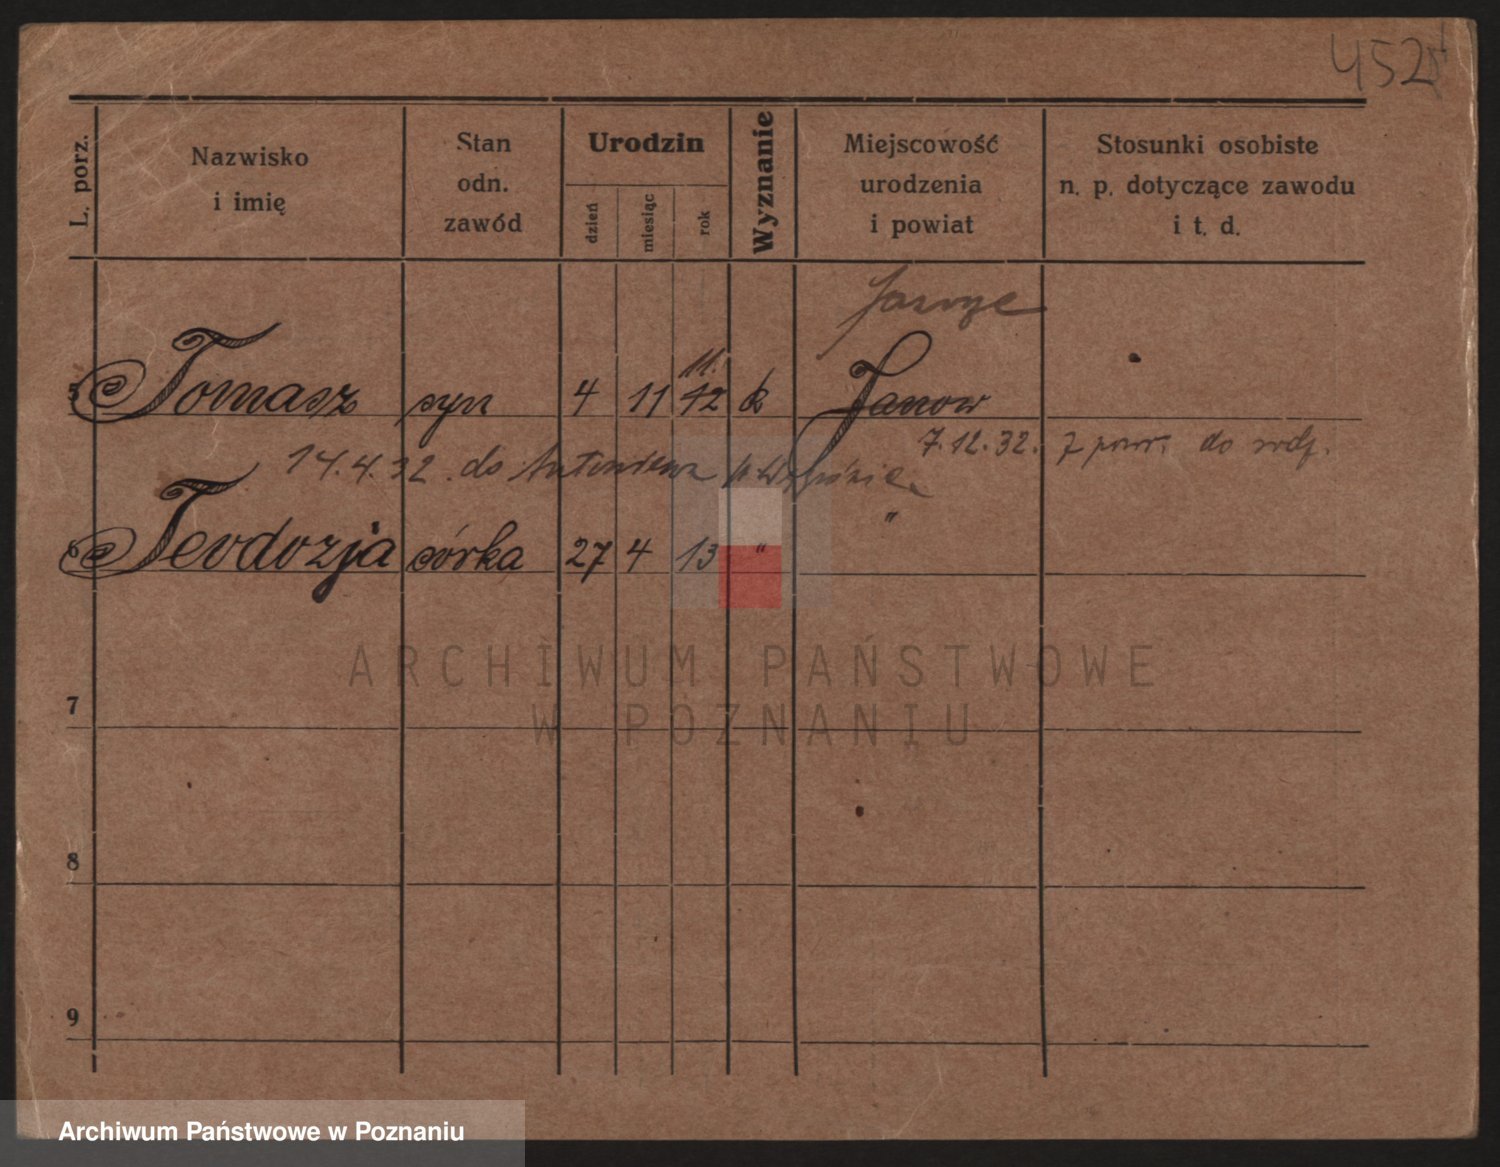 452
L. porz.
Nazwisko
i imię
Stan
odn.
zawód
Urodzin
dzień
miesiąc
rok
Wyznanie
Miejscowość
urodzenia
i powiat
Stosunki osobiste
n. p. dotyczące zawodu
i t. d.
11.
5 Tomasz syn 4 11 12 k Janow
7.12.32. z pow. do
14.4.32. do
"
6 Teodozja córka 27 4 13 "
ARCHIWUM PAŃSTWOWE
W POZNANIU
7
8
9
Archiwum Państwowe w Poznaniu